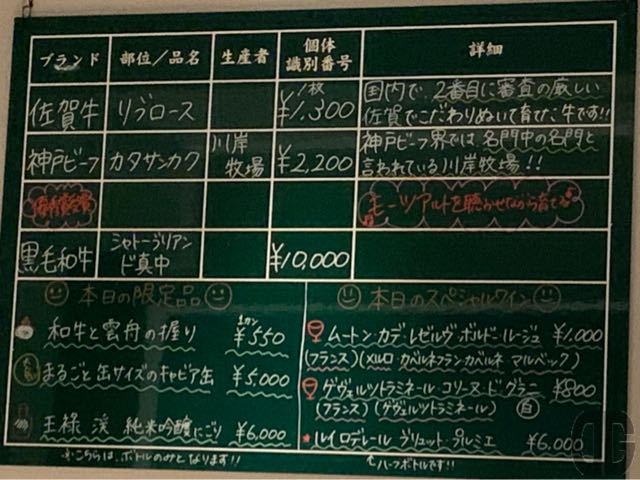 ブランド 部位/品名 生産者 個体識別番号 詳細
佐賀牛 リブロース 1枚 ¥1,300 国内で、2番目に審査の厳しい
佐賀でこだわりぬいて育てた牛です!!
神戸ビーフ カタサンカク 川岸牧場 ¥2,200 神戸ビーフ界では、名門中の名門と
言われている川岸牧場!!
モーツァルトを聴かせながら育てる♪
黒毛和牛 シャトーブリアンド真中 ¥10,000
本日の限定品
和牛と雲丹の握り 1カン ¥550
まるごと缶サイズのキャビア缶 ¥5,000
王禄 渓 純米吟醸にごり ¥6,000
※こちらは、ボトルのみとなります!!
本日のスペシャルワイン
ムートン・カデ・レゼルヴ・ボルドー・ルージュ ¥1,000
(フランス)(メルロ・カベルネフラン・カベルネ マルベック)
ゲヴェルツトラミネール・コリーヌ・ド・グラニ ¥800
(フランス)(ゲヴェルツトラミネール) 白
★ルイロデレール ブリュット・プルミエ ¥6,000
↑ハーフボトルです!!